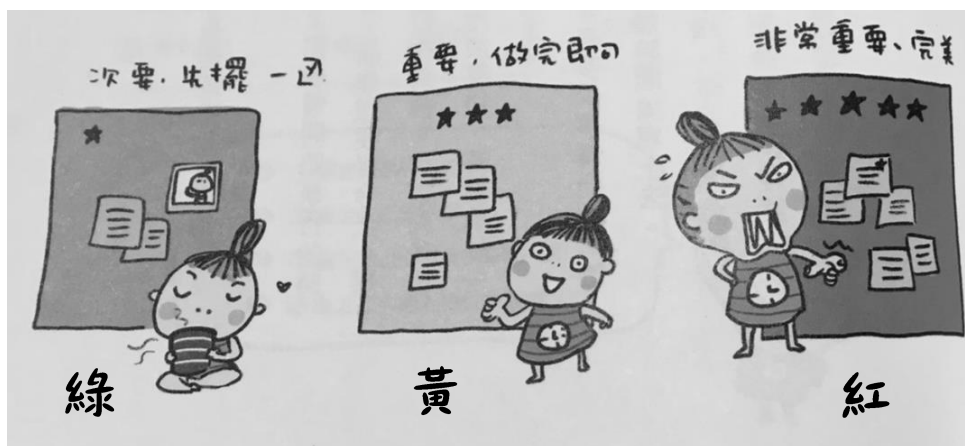 次要，先擺一邊
重要，做完即可
非常重要、完美
綠
黃
紅